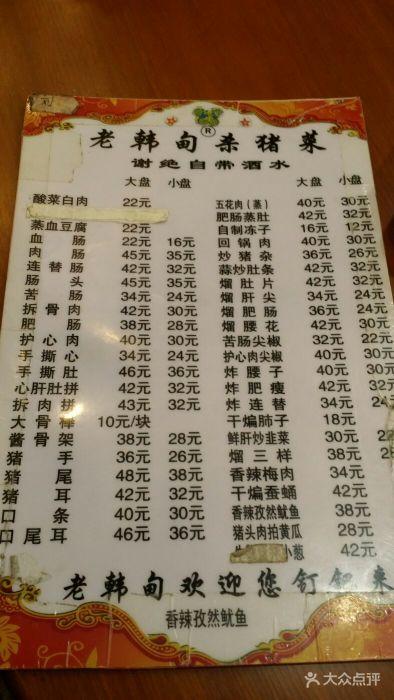 老韩甸杀猪菜
®
谢绝自带酒水
大盘 小盘
酸菜白肉 22元
蒸血豆腐 22元
血肠 22元 16元
肉肠 45元 35元
连替肠 42元 32元
肠头 45元 35元
苦肠 34元 24元
拆骨肉 42元 30元
肥肠 38元 28元
护心肉 40元 30元
手撕心 34元 24元
手撕肚 46元 36元
心肝肚拼 42元 32元
拆肉拼 43元 32元
大骨棒 10元/块
酱骨架 38元 28元
猪手 36元 26元
猪尾 48元 38元
猪耳 42元 32元
口条 40元 30元
口尾耳 46元 36元
大盘 小盘
五花肉（蒸） 40元 30元
肥肠蒸肚 42元 32元
自制冻子 16元 12元
回锅肉 40元 30元
炒猪杂 36元 26元
蒜炒肚条 42元 32元
熘肚片 42元 32元
熘肝尖 34元 24元
熘肥肠 40元 30元
熘腰花 40元 30元
苦肠尖椒 42元 32元
护心肉尖椒 40元 30元
炸腰子 40元 30元
炸肥瘦 42元 32元
炸连替 34元 24元
干煸肺子 18元
鲜肝炒韭菜 30元
熘三样 38元 28元
香辣梅肉 34元
干煸蚕蛹 42元
香辣孜然鱿鱼 38元
猪头肉拍黄瓜 28元
小葱 42元
老韩甸欢迎您
香辣孜然鱿鱼
大众点评